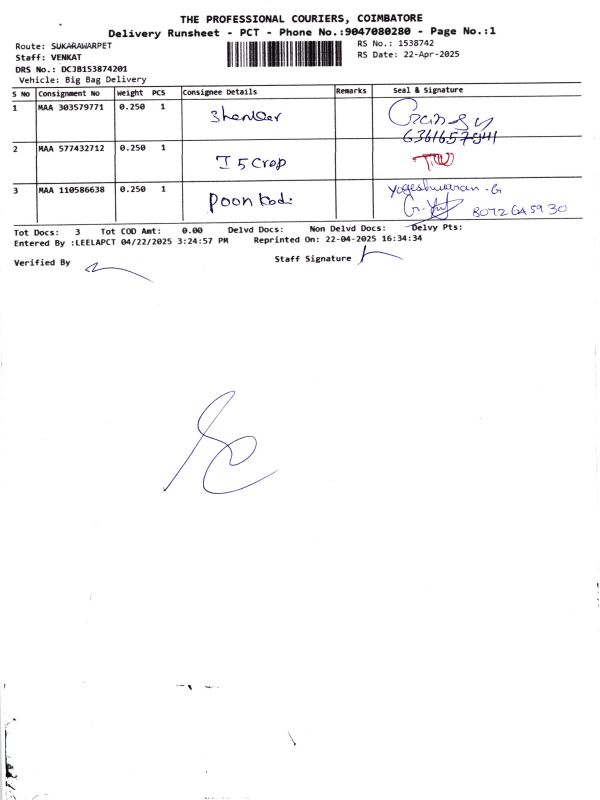 THE PROFESSIONAL COURIERS, COIMBATORE
Delivery Runsheet - PCT - Phone No.:9047080280 - Page No.:1
Route: SUKARAWARPET
RS No.: 1538742
Staff: VENKAT
RS Date: 22-Apr-2025
DRS No.: DCJB153874201
Vehicle: Big Bag Delivery
S No Consignment No Weight PCS Consignee Details Remarks Seal & Signature
1 MAA 303579771 0.250 1 Shanker
6361657941
2 MAA 577432712 0.250 1 I 5 Crop
3 MAA 110586638 0.250 1 Poonkodi Yogeshwaran.G
Tot Docs: 3 Tot COD Amt: 0.00 Delvd Docs: Non Delvd Docs: Delvy Pts:
Entered By :LEELAPCT 04/22/2025 3:24:57 PM Reprinted On: 22-04-2025 16:34:34
Verified By Staff Signature